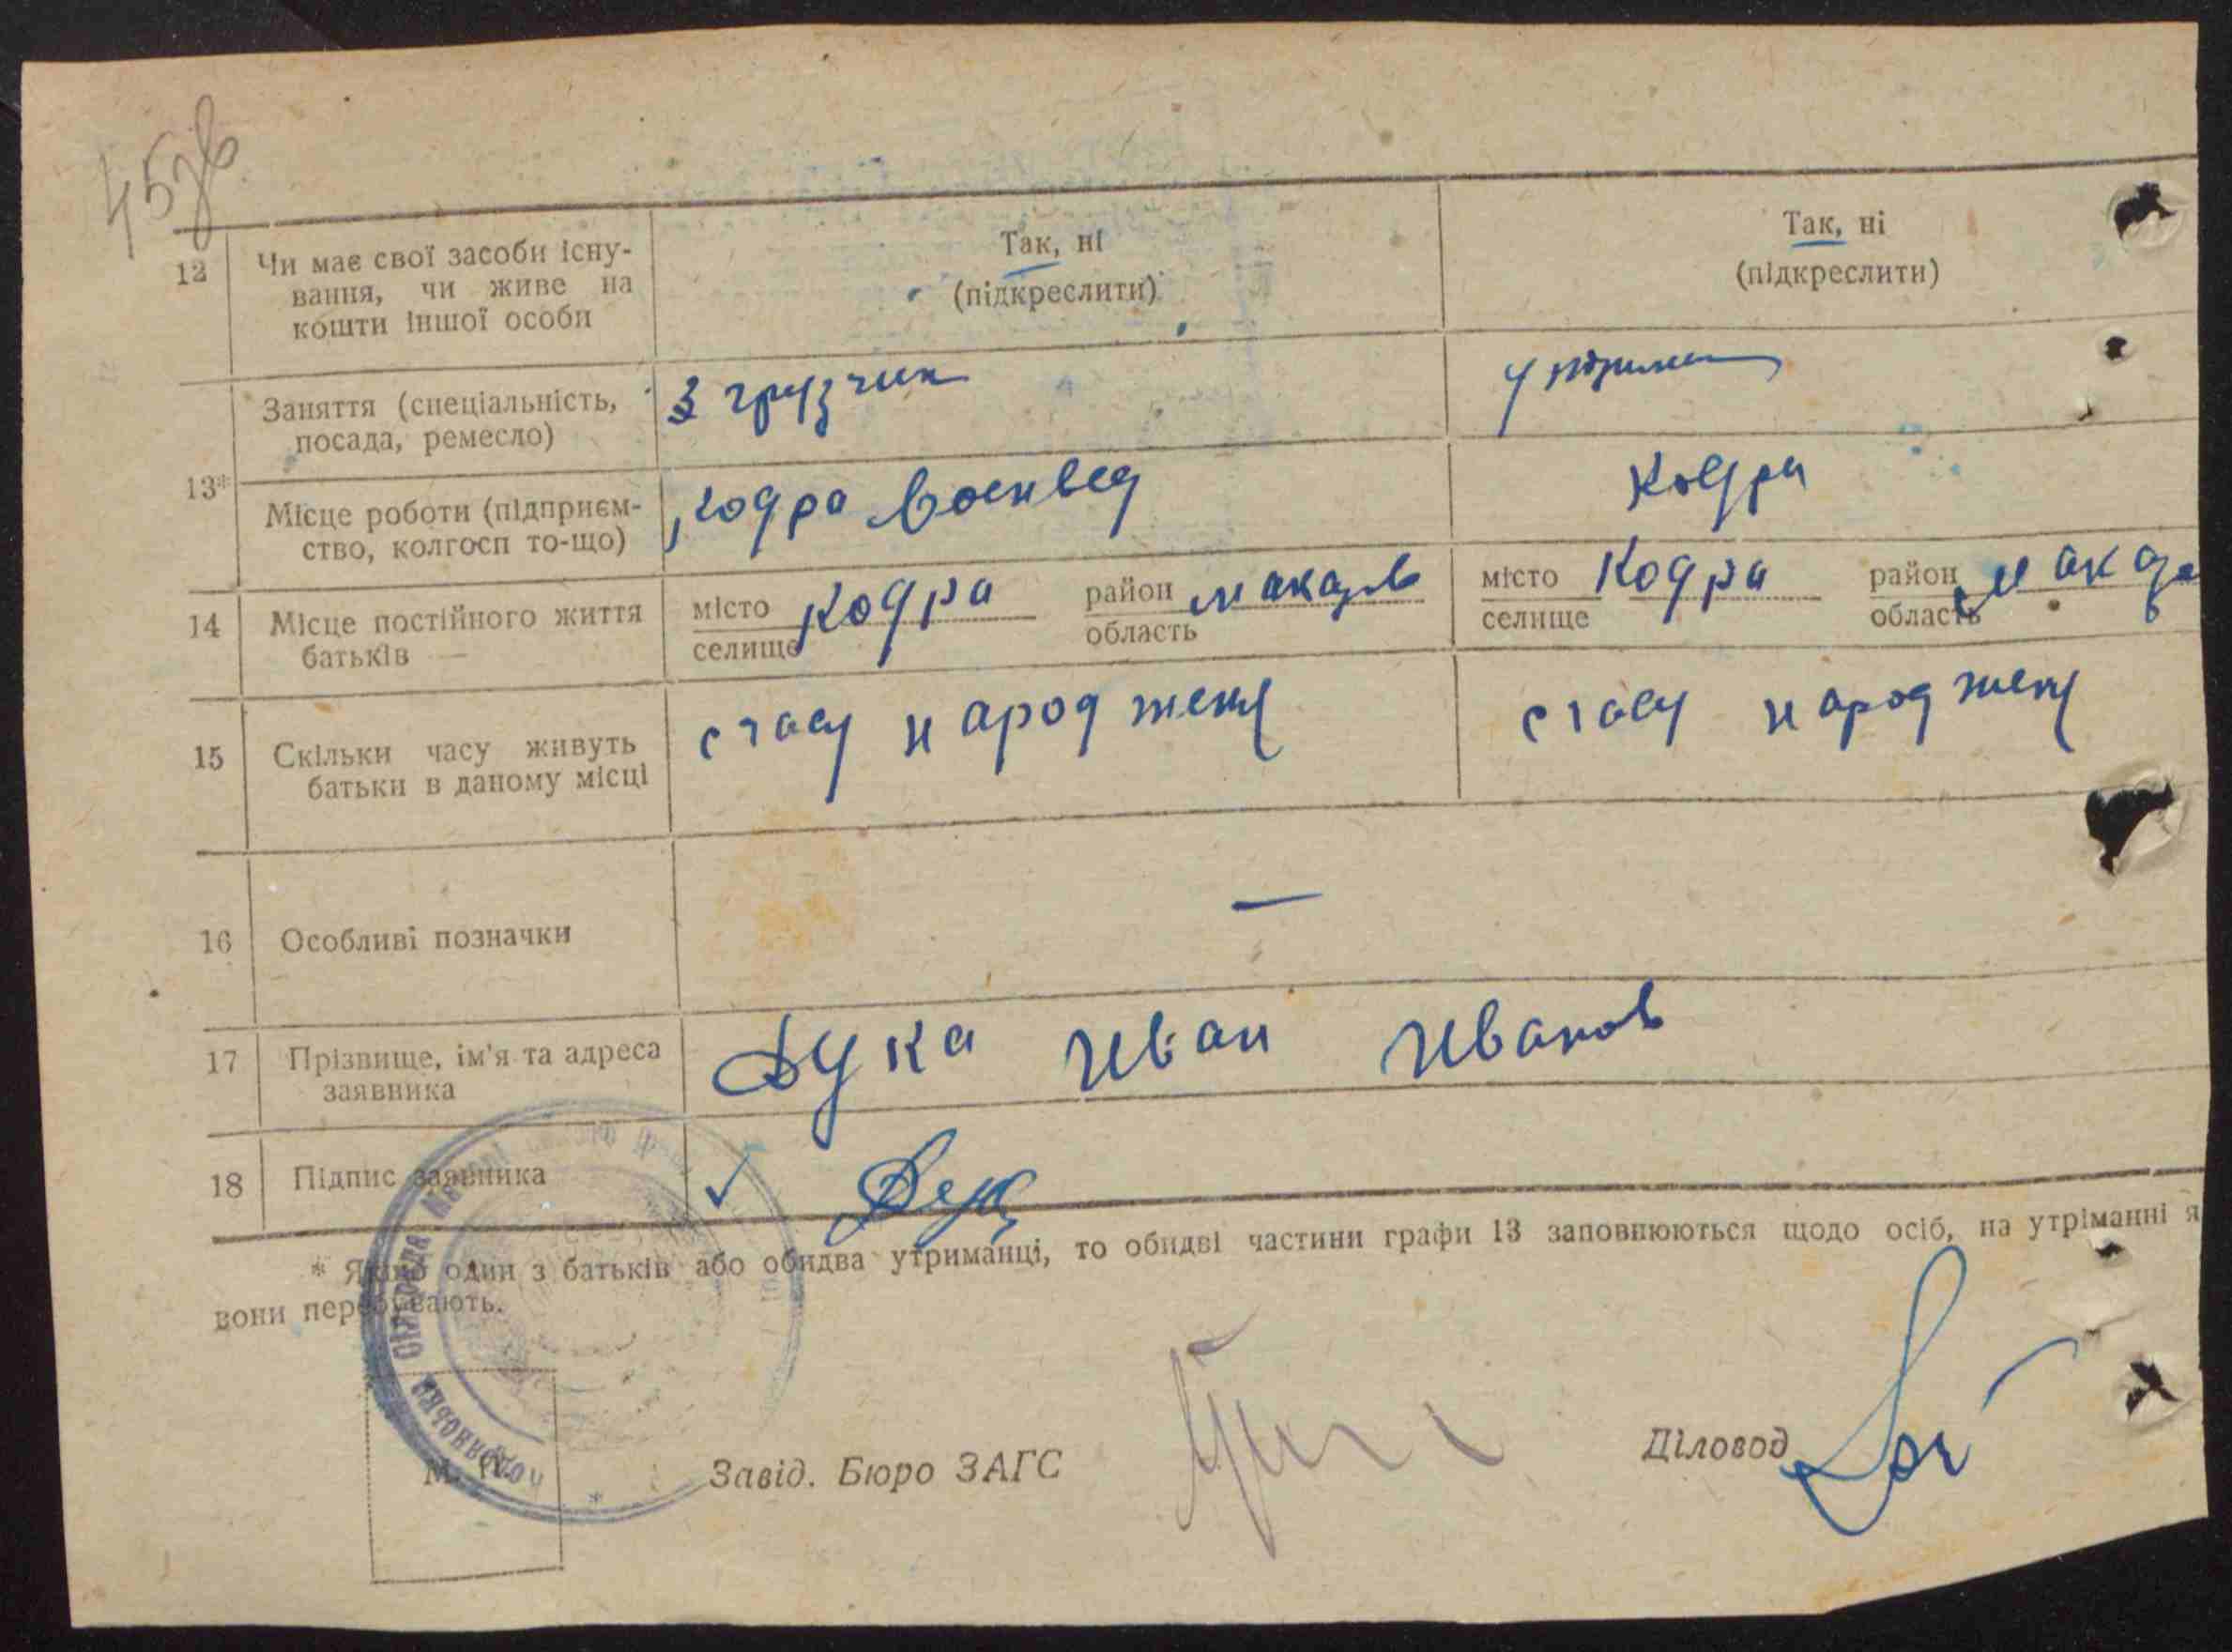 45зв
12 Чи має свої засоби існу-
вання, чи живе на
кошти іншої особи
Так, ні
(підкреслити)
Так, ні
(підкреслити)
13*
Заняття (спеціальність,
посада, ремесло)
грузчик
Місце роботи (підприєм-
ство, колгосп то-що)
Кодра Военвед
Кодра
14 Місце постійного життя
батьків
місто
селище
Кодра
район
область
макарів
місто
селище
Кодра
район
область
макар
15 Скільки часу живуть
батьки в даному місці
счасу народжену
счасу народжену
16 Особливі позначки
—
17 Прізвище, ім'я та адреса
заявника
Дука Иван Иванов
18 Підпис заявника
* Якщо один з батьків або обидва утриманці, то обидві частини графи 13 заповнюються щодо осіб, на утріманні я
вони перебувають.
М. П.
Завід. Бюро ЗАГС
Діловод